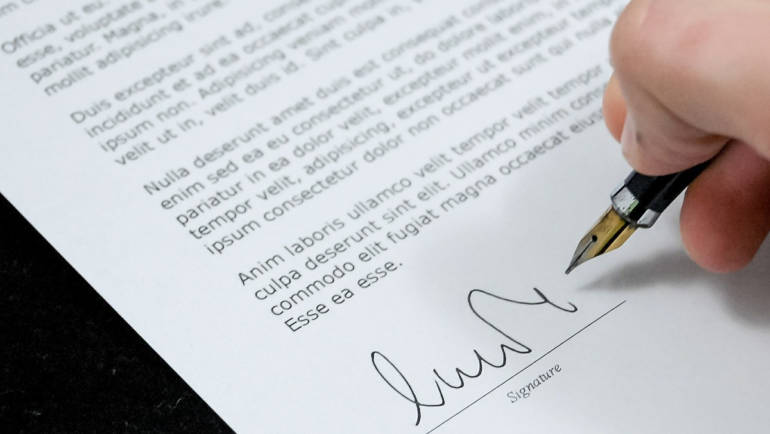 Officia ut eu.
esse, voluptate
pariatur. Magna, in
mollit adipisicing irure.
Duis excepteur sint ad, conse
incididunt et ad ea occaecat cup
ipsum non. Adipisicing veniam
velit ut in, velit duis id. Sint culpa in,
Nulla deserunt amet duis est consequat
enim sed ea eu consectetur ut, do dolore
pariatur in ea dolor velit, excepteur mollit enim, in
tempor velit, adipisicing, excepteur ut excepteur
ipsum consectetur dolor non occaecat sunt qui nulla
Anim laboris ullamco velit tempor velit tempor
culpa deserunt sint elit. Ullamco minim
commodo elit fugiat magna occaecat eius
Esse ea esse.
Signature